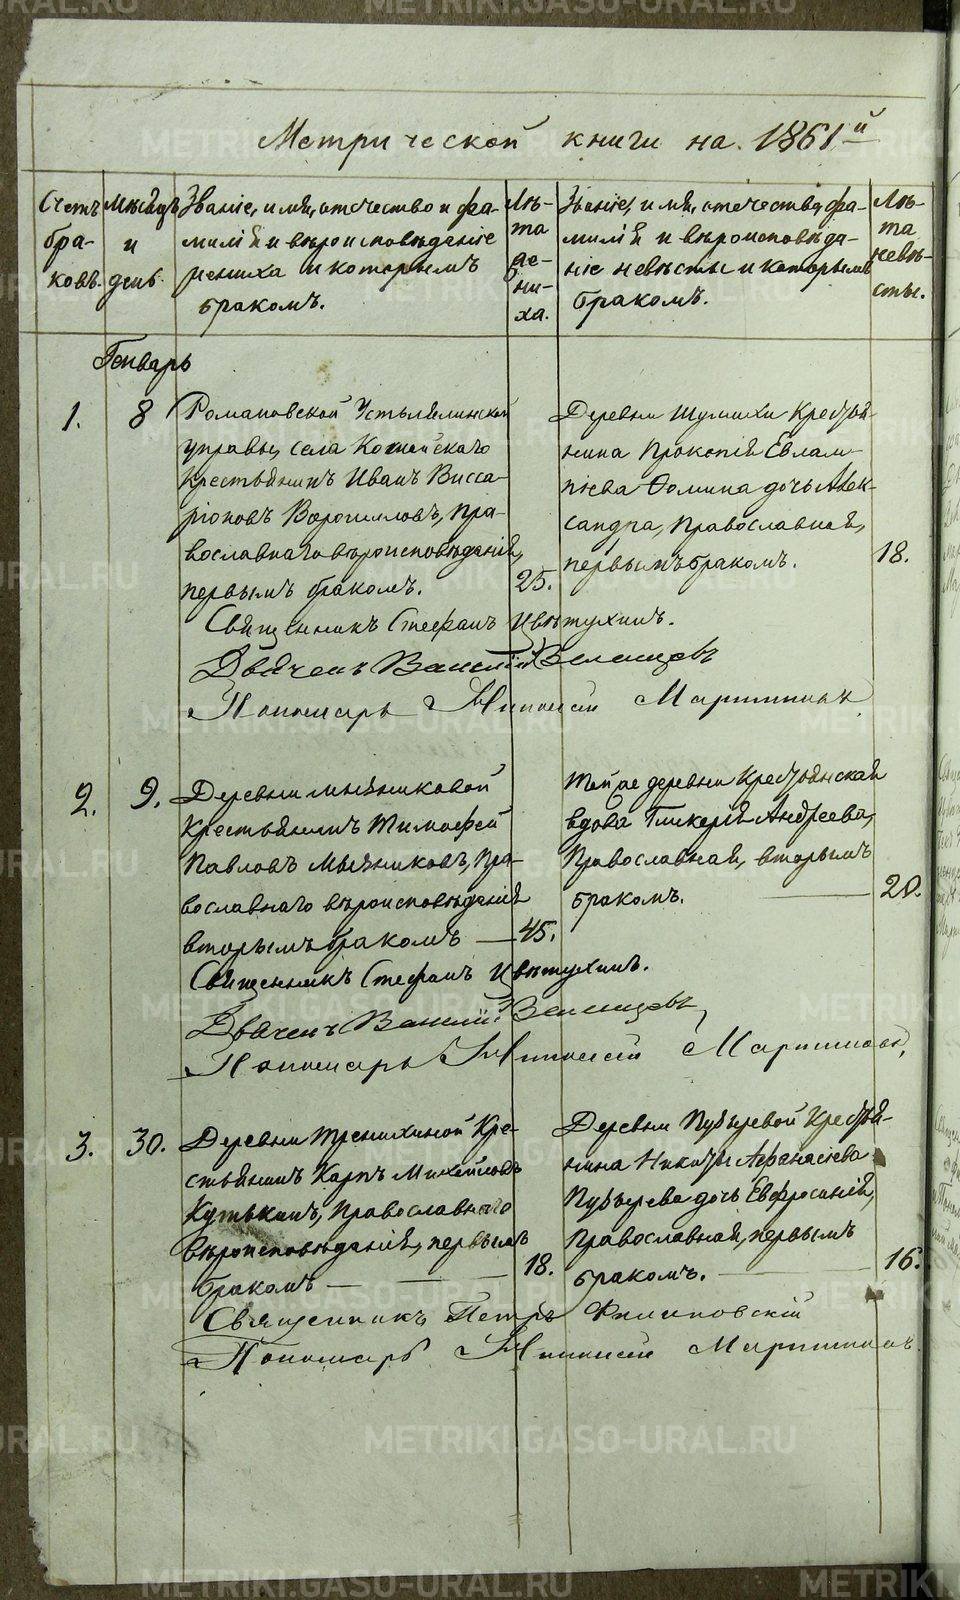 Метрической книги на 1861й
Счетъ браковъ.
Мѣсяцъ и день.
Званіе, имя, отчество и фа-
милія и вѣроисповѣданіе
жениха и которымъ
бракомъ.
Лѣ-
та
же-
ни-
ха.
Званіе, имя, отечество, фа-
милія и вѣроисповѣда-
ніе невѣсты и которымъ
бракомъ.
Лѣ-
та
невѣ-
сты.
Генварь
1. 8
Романовской
управы, села
крестьянинъ Иванъ Висса-
ріоновъ Ворошиловъ, пра-
вославнаго вѣроисповѣданія,
первымъ бракомъ. 25.
Деревни Шумихи Крестья-
нина Прокопія Евлам-
піева Фомина дочь Алек-
сандра, православная,
первымъ бракомъ. 18.
Священникъ Стефанъ Цвѣтухинъ.
Дьячекъ Василій
Пономарь
2. 9.
Деревни Мызниковой
крестьянинъ Тимофей
Павловъ Мызниковъ, пра-
вославнаго вѣроисповѣданія
вторымъ бракомъ 45.
Той же деревни крестьянская
вдова Гликерія Андреева,
православная, вторымъ
бракомъ. 20.
Священникъ Стефанъ Цвѣтухинъ.
Дьячекъ Василій
Пономарь
3. 30.
Деревни Трешихиной кре-
стьянинъ Карпъ Михайловъ
Кутькинъ, православнаго
вѣроисповѣданія, первымъ
бракомъ 18.
Деревни Пузыревой крестья-
нина Никиты Афанасіева
Пузырева дочь Евфросинія,
православная, первымъ
бракомъ. 16.
Священникъ Петръ Филиповскій
Пономарь
METRIKI.GASO-URAL.RU